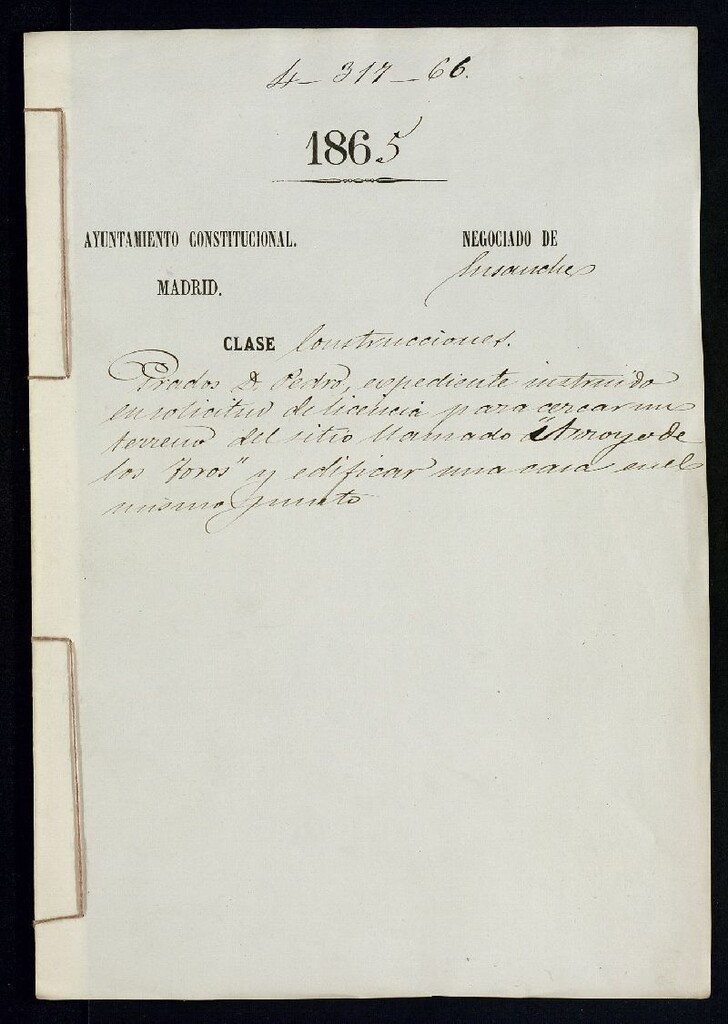 4 - 317 - 66.
1865
AYUNTAMIENTO CONSTITUCIONAL.
MADRID.
NEGOCIADO DE
Ensanche
CLASE Construcciones.
Prados D. Pedro, expediente instruido
en solicitud de licencia para cercar un
terreno del sitio llamado "Arroyo de
los Toros" y edificar una casa en el
mismo punto